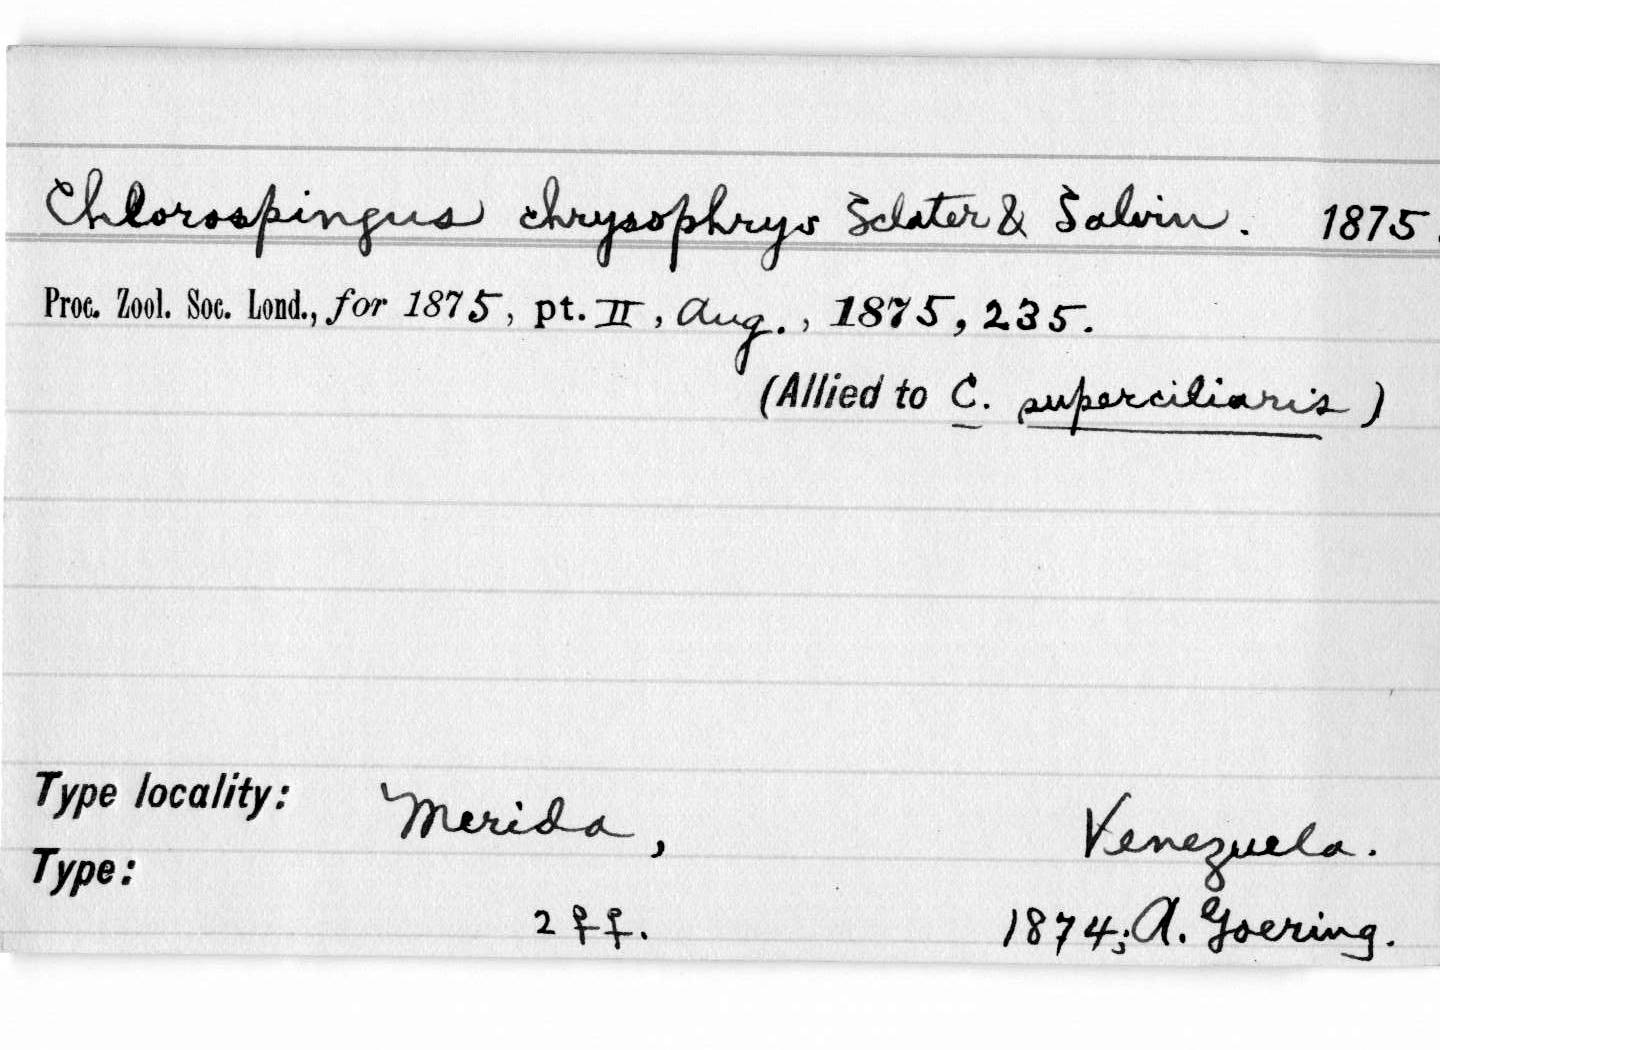 Chlorospingus chrysophrys Sclater & Salvin. 1875.
Proc. Zool. Soc. Lond., for 1875, pt. II, Aug., 1875, 235.
(Allied to C. superciliaris)
Type locality: Merida, Venezuela.
Type:
2 ♀♀. 1874; A. Goering.